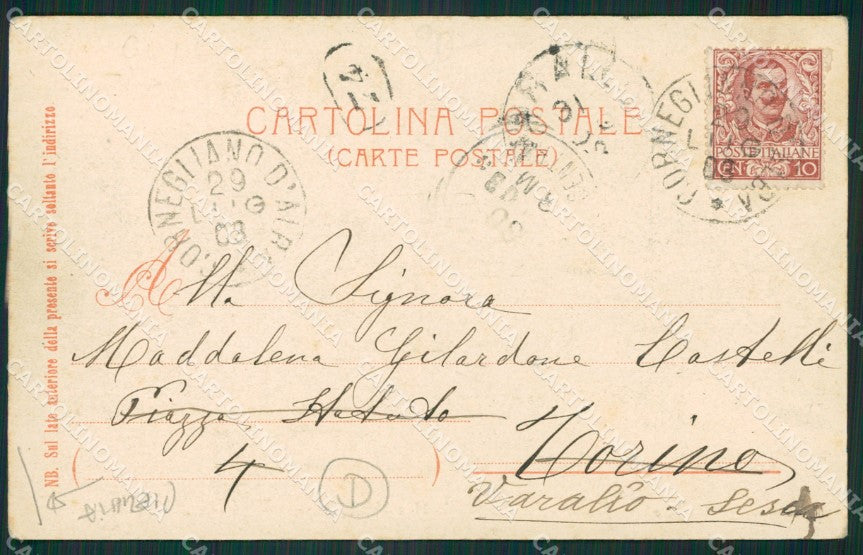 CARTOLINA POSTALE
(CARTE POSTALE)
24
CORNEGLIANO D'ALBA
29
LUG
03
POSTE ITALIANE
CEN 10
NB. Sul lato anteriore della presente si scrive soltanto l'indirizzo
Alla Signora
Maddalena Gilardone Castelli
Piazza Statuto
4
Torino
Varallo-Sesia
D
CARTOLINOMANIA